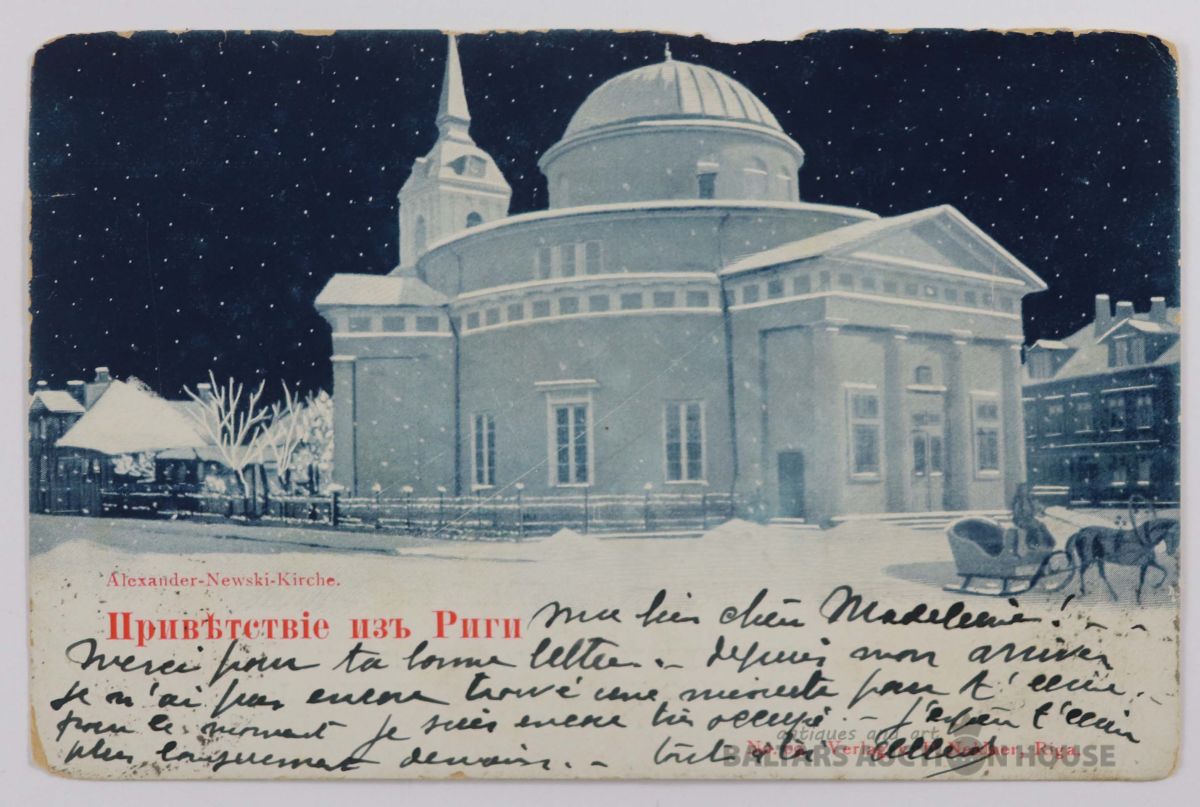 Alexander-Newski-Kirche.
Привѣтствіе изъ Риги
Ma bien chère Madeleine!
Merci pour ta bonne lettre. – depuis mon arrivée
je n'ai pas encore trouvé une minute pour t'écrire.
pour le moment je suis encore très occupé. – j'espère t'écrire
plus longuement demain. – tout à toi
antiques and art
No. Verlag Riga.
BALTARS AUCTION HOUSE